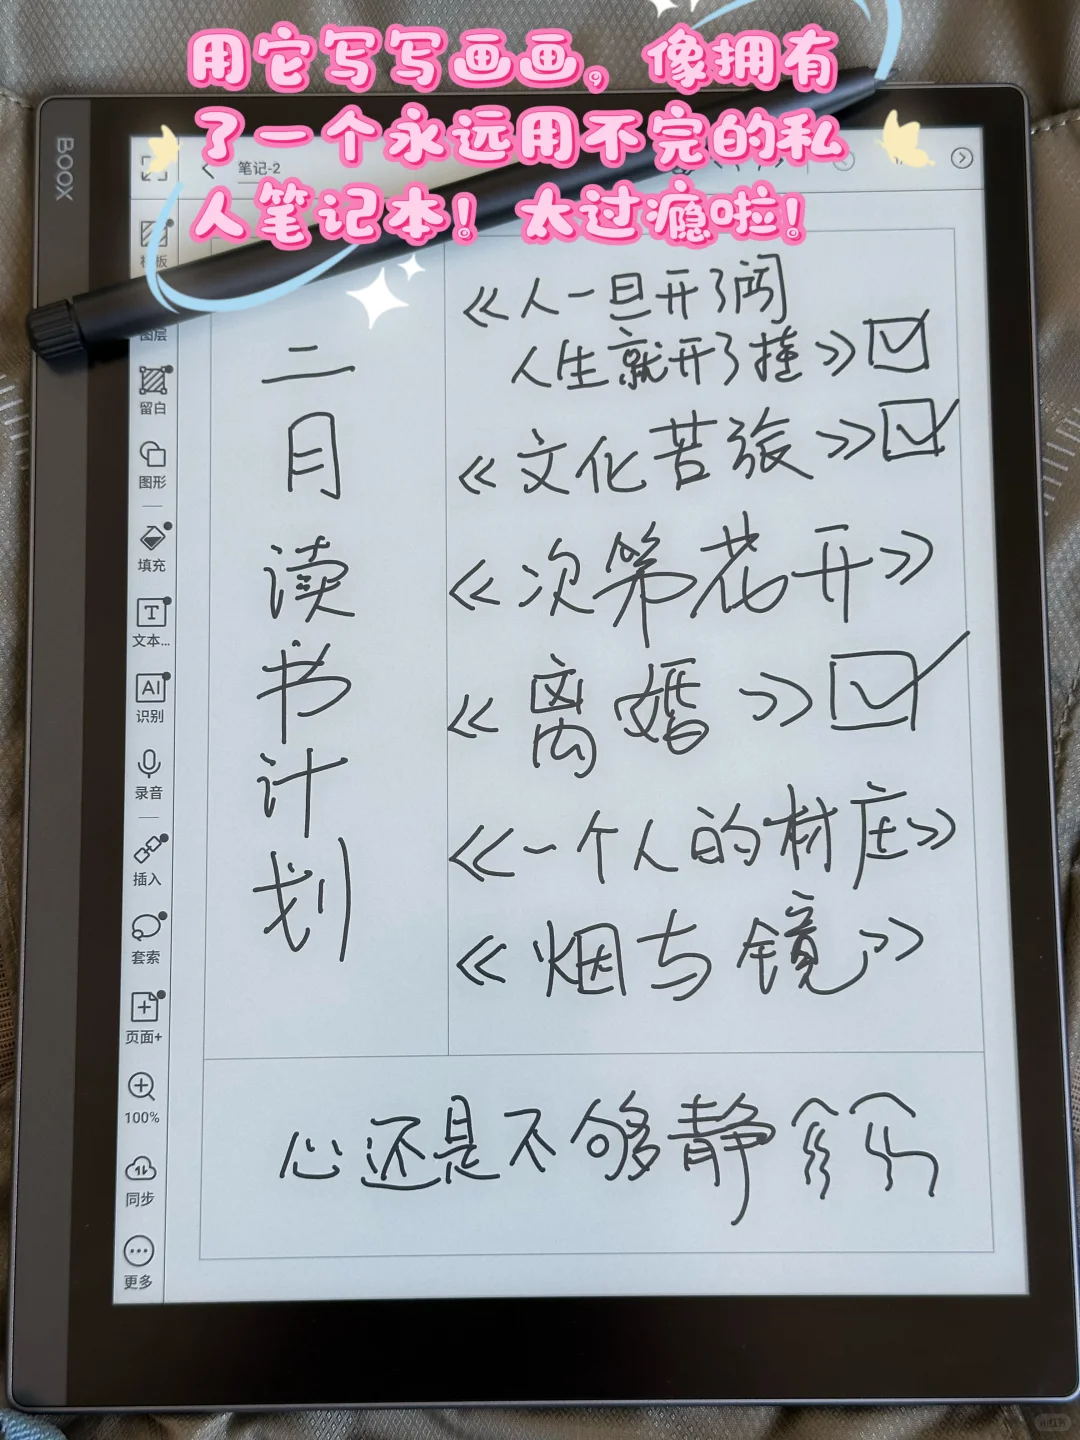 用它写写画画，像拥有
了一个永远用不完的私
人笔记本！太过瘾啦！
BOOX
笔记-2
图层
留白
图形
填充
文本...
AI
识别
录音
插入
套索
页面+
100%
同步
更多
二月读书计划
《人一旦开了闷
人生就开了挂》
《文化苦旅》
《次第花开》
《离婚》
《一个人的村庄》
《烟与镜》
心还是不够静
小红书